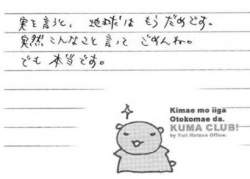 実を言うと、地球は もう だめです。
突然こんなこと言って ごめんね。
でも 本当です。
Kimae mo iiga
Otokomae da.
KUMA CLUB!
by Yuji Nishimura Office.